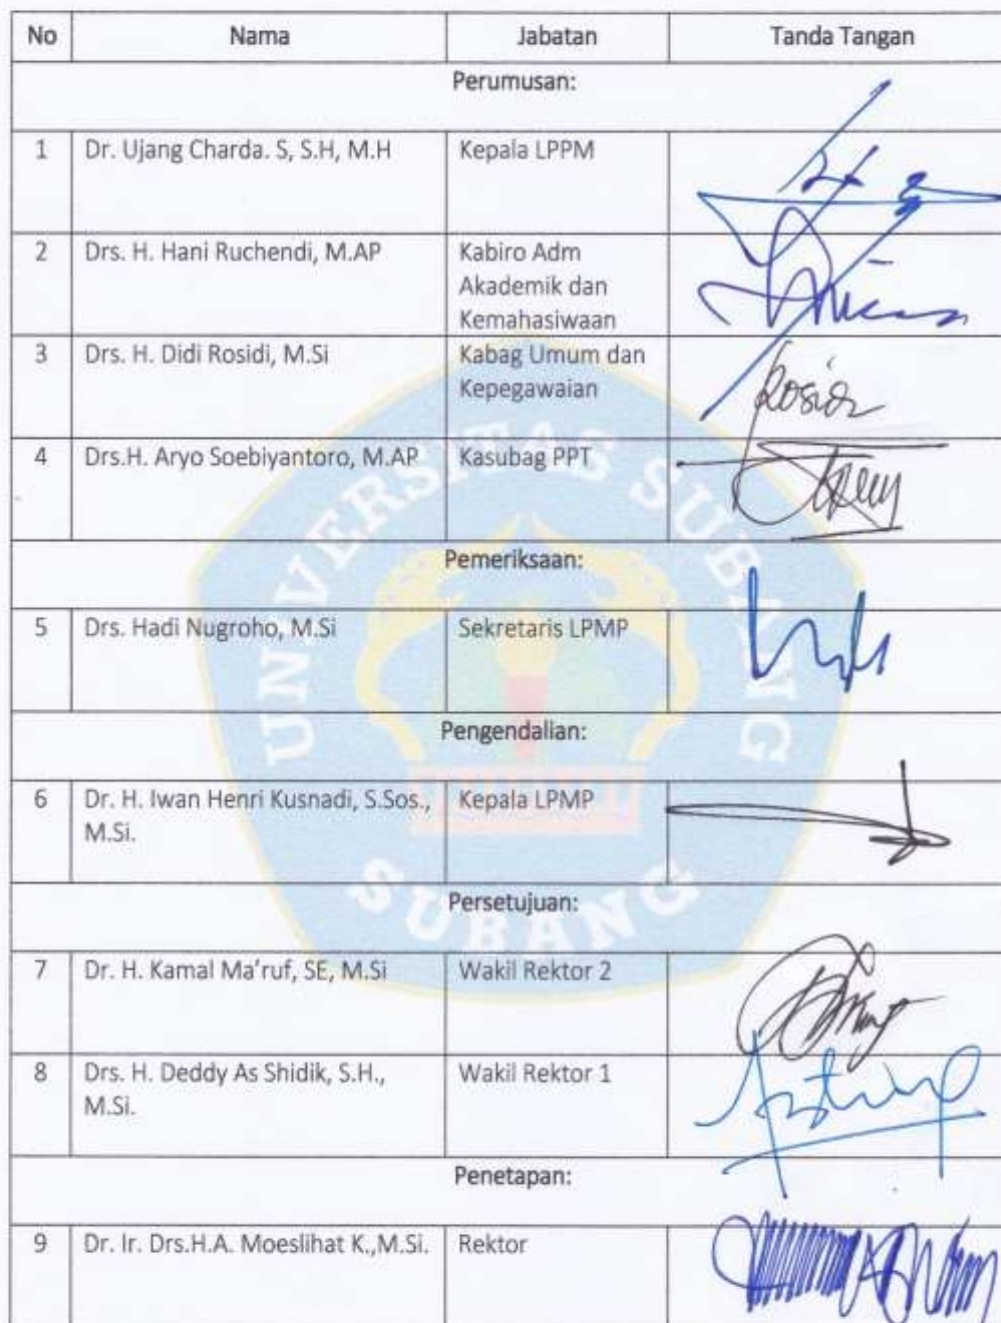 No Nama Jabatan Tanda Tangan
Perumusan:
1 Dr. Ujang Charda. S, S.H, M.H Kepala LPPM
2 Drs. H. Hani Ruchendi, M.AP Kabiro Adm
Akademik dan
Kemahasiwaan
3 Drs. H. Didi Rosidi, M.Si Kabag Umum dan
Kepegawaian
4 Drs.H. Aryo Soebiyantoro, M.AP Kasubag PPT
Pemeriksaan:
5 Drs. Hadi Nugroho, M.Si Sekretaris LPMP
Pengendalian:
6 Dr. H. Iwan Henri Kusnadi, S.Sos., Kepala LPMP
M.Si.
Persetujuan:
7 Dr. H. Kamal Ma'ruf, SE, M.Si Wakil Rektor 2
8 Drs. H. Deddy As Shidik, S.H., Wakil Rektor 1
M.Si.
Penetapan:
9 Dr. Ir. Drs.H.A. Moeslihat K.,M.Si. Rektor
UNIVERSITAS SUBANG
SUBANG